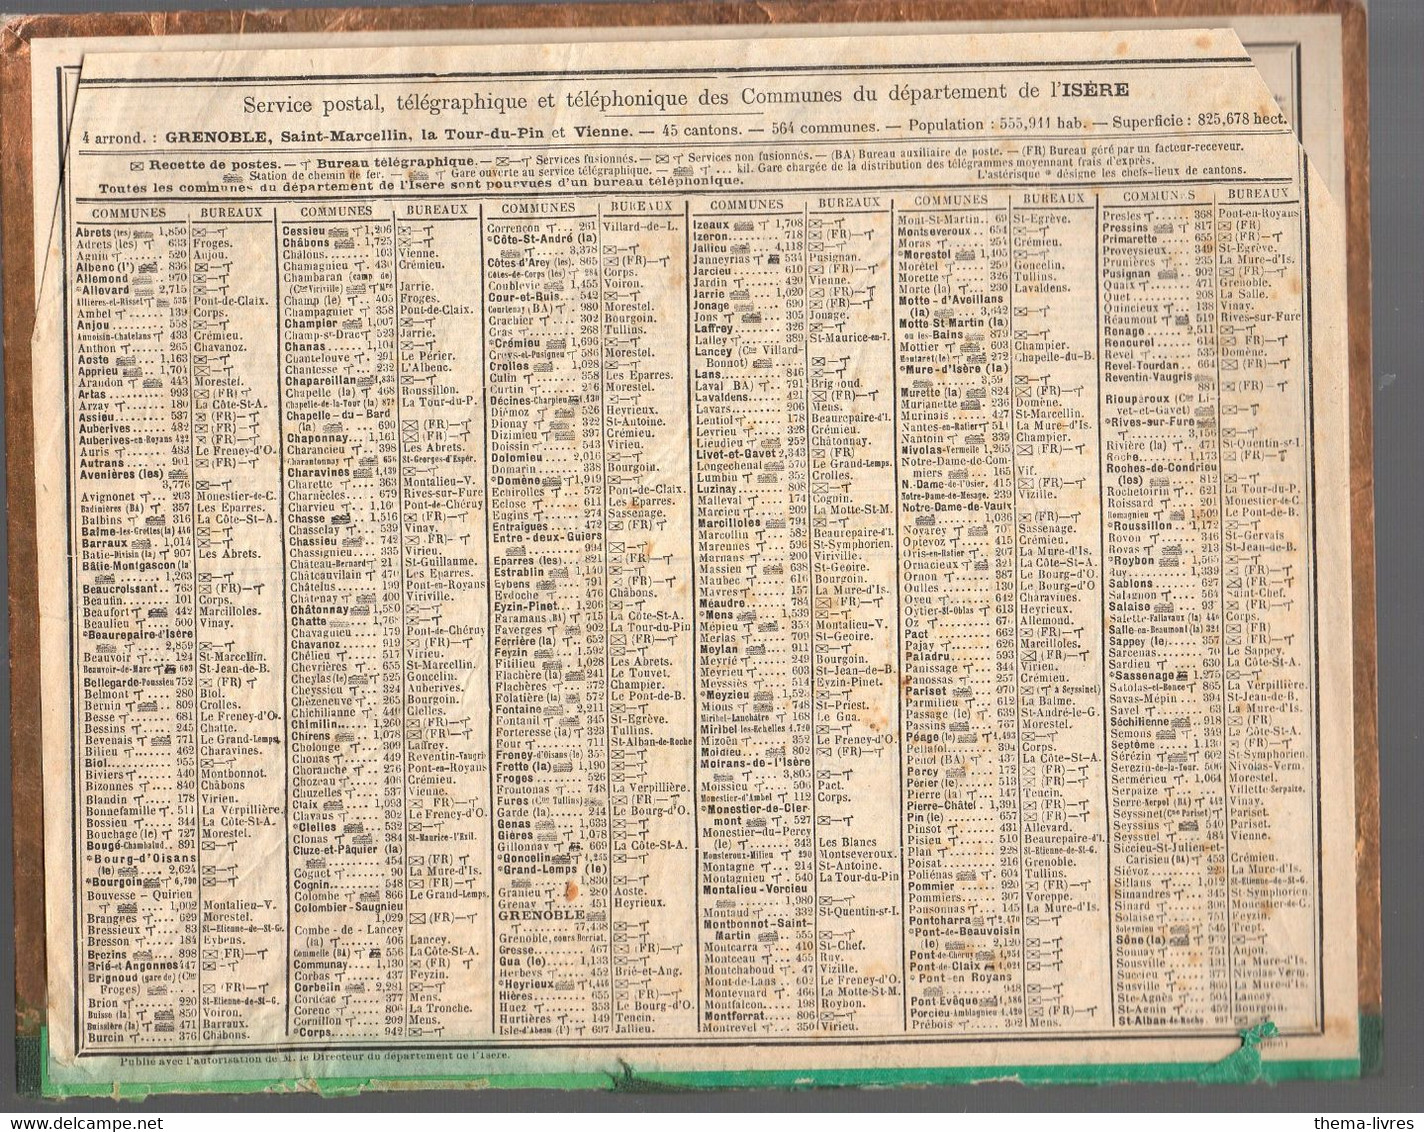 Service postal, télégraphique et téléphonique des Communes du département de l'ISÈRE
4 arrond. : GRENOBLE, Saint-Marcellin, la Tour-du-Pin et Vienne. — 45 cantons. — 564 communes. — Population : 555,911 hab. — Superficie : 825,678 hect.
Recette de postes. — Bureau télégraphique. — Services fusionnés. — Services non fusionnés. — (BA) Bureau auxiliaire de poste. — (FR) Bureau géré par un facteur-receveur.
Station de chemin de fer. — Gare ouverte au service télégraphique. — ... kil. Gare chargée de la distribution des télégrammes moyennant frais d'exprès.
L'astérisque * désigne les chefs-lieux de cantons.
Toutes les communes du département de l'Isère sont pourvues d'un bureau téléphonique.
COMMUNES BUREAUX COMMUNES BUREAUX COMMUNES BUREAUX COMMUNES BUREAUX COMMUNES BUREAUX COMMUNES BUREAUX
Abrets (les) 1,850
Adrets (les) 633 Froges.
Agnin 520 Anjou.
Albenc (l') 836
Allemond 970
*Allevard 2,715
Allières-et-Risset 535 Pont-de-Claix.
Ambel 139 Corps.
Anjou 558
Annoisin-Chatelans 433 Crémieu.
Anthon 265 Chavanoz.
Aoste 1,163
Apprieu 1,704
Arandon 443 Morestel.
Artas 993 (FR)
Arzay 180 La Côte-St-A.
Assieu 537 (FR)
Auberives 482 (FR)
Auberives-en-Royans 422 (FR)
Auris 483 Le Freney-d'O.
Autrans 901 (FR)
Avenières (les)
3,776
Avignonet 203 Monestier-de-C.
Badinières (BA) 357 Les Eparres.
Balbins 316 La Côte-St-A.
Balme-les-Grottes (la) 446
Barraux 1,014
Batie-Divisin (la) 907 Les Abrets.
Bâtie-Montgascon (la
1,263
Beaucroissant 763 (FR)
Beaufin 101 Corps.
Beaufort 442 Marcilloles.
Beaulieu 500 Vinay.
*Beaurepaire-d'Isère
2,859
Beauvoir 124 St-Marcellin.
Beauvoir-de-Marc 693 St-Jean-de-B.
Bellegarde-Poussieu 752 (FR)
Belmont 280 Biol.
Bernin 809 Crolles.
Besse 681 Le Freney-d'O.
Bessins 245 Chatte.
Bevenais 771 Le Grand-Lemps.
Bilieu 462 Charavines.
Biol 955
Biviers 440 Montbonnot.
Bizonnes 840 Châbons
Blandin 178 Virieu.
Bonnefamille 511 La Verpillière.
Bossieu 344 La Côte-St-A.
Bouchage (le) 727 Morestel.
Bougé-Chambalud 891
*Bourg-d'Oisans
(le) 2,624
*Bourgoin 6,790
Bouvesse - Quirieu
1,002 Montalieu-V.
Brangues 629 Morestel.
Bressieux 83 St-Etienne-de-St-G.
Bresson 184 Eybens.
Brezins 898 (FR)
Brié-et-Angonnes 447
Brignoud (gare de) (Cne
Froges)
Brion 220 St-Etienne-de-St-G.
Buisse (la) 850 Voiron.
Buissière (la) 471 Barraux.
Burcin 376 Châbons.
Cessieu 1,206
Châbons 1,725
Châlons 103 Vienne.
Chamagnieu 430 Crémieu.
Chambaran (camp de)
(Cne Viriville) Jarrie.
Champ (le) 405 Froges.
Champagnier 358 Pont-de-Claix.
Champier 1,007
Champ-sr-Drac 523 Jarrie.
Chanas 1,104
Chantelouve 291 Le Périer.
Chantesse 232 L'Albenc.
Chapareillan 1,835
Chapelle (la) 468 Roussillon.
Chapelle-de-la-Tour (la) La Tour-du-P.
Chapelle - du - Bard
(la) 690 (FR)
Chaponnay 1,161 (FR)
Charancieu 398 Les Abrets.
Charantonnay 656 St-Georges-d'Espér.
Charavines 1,139
Charette 363 Montalieu-V.
Charnècles 679 Rives-sur-Fure
Charvieu 1,160 Pont-de-Chéruy
Chasse 1,516 (FR)
Chasselay 539 Vinay.
Chassieu 742 (FR)
Chassignieu 335 Virieu.
Château-Bernard St-Guillaume.
Châteauvilain 470 Les Eparres.
Châtelus 199 Pont-en-Royans
Châtenay 400 Viriville.
Châtonnay 1,580
Chatte
Chavagnieu 179 Pont-de-Chéruy
Chavanoz 919 (FR)
Chélieu 517 Virieu.
Chevrières 655 St-Marcellin.
Cheylas (le) 525 Goncelin.
Cheyssieu 324 Auberives.
Chèzeneuve 265 Bourgoin.
Chichilianne 440 Clelles.
Chimilin 1,260 (FR)
Chirens 1,078 (FR)
Cholonge 309 Laffrey.
Chonas 449 Reventin-Vaugris
Choranche 276 Pont-en-Royans
Chozeau 406 Crémieu.
Chuzelles 537 Vienne.
Claix 1,093 (FR)
Clavaus 302 Le Freney-d'O.
*Clelles 532
Clonas 384 St-Maurice-l'Exil.
Cluze-et-Pâquier (la)
454 (FR)
Cognet 90 La Mure-d'Is.
Cognin 548 (FR)
Colombe 866 Le Grand-Lemps.
Colombier-Saugnieu
1,029 (FR)
Combe - de - Lancey
(la) 406 Lancey.
Commelle (BA) 556 La Côte-St-A.
Communay 1,130 (FR)
Corbas 437 Feyzin.
Corbelin 2,281
Cordéac 377 Mens.
Corenc 806 La Tronche.
Cornillon 209 Mens.
*Corps 942
Correncon 261 Villard-de-L.
*Côte-St-André (la)
3,378
Côtes-d'Arey (les) 865 (FR)
Côtes-de-Corps (les) 284 Corps.
Coublevie 1,455 Voiron.
Cour-et-Buis 542
Courtenay (BA) 980 Morestel.
Crachier 302 Bourgoin.
Cras 268 Tullins.
*Crémieu 1,696
Creys-et-Pusigneu 586 Morestel.
Crolles 1,028
Culin 358 Les Eparres.
Curtin 216 Morestel.
Décines-Charpieu 1,430
Diémoz 526 Heyrieux.
Dionay 322 St-Antoine.
Dizimieu 397 Crémieu.
Doissin 543 Virieu.
Dolomieu 2,016
Domarin 338 Bourgoin.
*Domène 1,919
Echirolles 572 Pont-de-Claix.
Eclose 611 Les Eparres.
Engins 274 Sassenage.
Entraigues 472 (FR)
Entre - deux - Guiers
994
Eparres (les) 821 (FR)
Estrablin 1,140
Eybens 791 (FR)
Eydoche 476 Châbons.
Eyzin-Pinet 1,206
Faramans (BA) 715 La Côte-St-A.
Faverges 902 La Tour-du-Pin
Ferrière (la) 652 (FR)
Feyzin 1,592
Fitilieu 1,028 Les Abrets.
Flachère (la) 241 Le Touvet.
Flachères 257 Champier.
Flolatière (la) 572 Le Pont-de-B.
Fontaine 2,211
Fontanil 345 St-Egrève.
Forteresse (la) 323 Tullins.
Four 711 St-Alban-de-Roche
Freney-d'Oisans (le) 355
Frette (la) 1,190
Froges 526
Frontonas 748 La Verpillière.
Fures (Cne Tullins) (FR)
Garde (la) 244 Le Bourg-d'O.
Genas 1,633
Gières 1,078
Gillonnay 669 La Côte-St-A.
*Goncelin 1,255
*Grand-Lemps (le)
1,830
Granieu 280 Aoste.
Grenay 451 Heyrieux.
GRENOBLE
77,438
Grenoble, cours Berriat.
Gresse 467 (FR)
Gua (le) 1,133
Herbeys 452 Brié-et-Ang.
*Heyrieux 1,446
Hières 655 (FR)
Huez 353 Le Bourg-d'O.
Hurtières 149 Tencin.
Isle-d'Abeau (l') 697 Jallieu.
Izeaux 1,708
Izeron 718 (FR)
Jallieu 4,118
Janneyrias 534 Pusignan.
Jarcieu 610 (FR)
Jardin 420 Vienne.
Jarrie 1,020 (FR)
Jonage 690 (FR)
Jons 305 Jonage.
Laffrey 326
Lalley 389 St-Maurice-en-T.
Lancey (Cne Villard-
Bonnot)
Lans 846
Laval (BA) 791 Brignoud.
Lavaldens 421 (FR)
Lavars 206 Mens.
Lentiol 178 Beaurepaire-d'I.
Levrieu 328 Crémieu.
Lieudieu 252 Châtonnay.
Livet-et-Gavet 2,343
Longechenal 570 Le Grand-Lemps.
Lumbin 352 Crolles.
Luzinay 808
Malleval 174 Cognin.
Marcieu La Motte-St-M.
Marcilloles 791
Marcollin 582 Beaurepaire-d'I.
Marennes 596 St-Symphorien.
Marnans 200 Viriville.
Massieu 638 St-Geoire.
Maubec 616 Bourgoin.
Mayres 157 La Mure-d'Is.
Méaudre 784 (FR)
*Mens
Mépieu 353 Montalieu-V.
Merlas 709 St-Geoire.
Meylan 911
Meyrié 249 Bourgoin.
Meyrieu 603 St-Jean-de-B.
Meyssiès 514 Eyzin-Pinet.
*Meyzieu
Mions 748 St-Priest.
Miribel-Lanchâtre 168 Le Gua.
Miribel-les-Echelles 1,720
Mizoën 352 Le Freney-d'O.
Moidieu 802 (FR)
Moirans-de-l'Isère
3,805
Moissieu 506 Pact.
Monestier-d'Ambel 112 Corps.
*Monestier-de-Cler-
mont 527
Monestier-du-Percy
(le) 343 Les Blancs
Monsteroux-Milieu 290 Monteseveroux.
Montagne 244 St-Antoine.
Montagnieu 540 La Tour-du-Pin
Montalieu-Vercieu
1,980
Montaud 332 St-Quentin-sr-I.
Montbonnot-Saint-
Martin 555
Montcarra 410 St-Chef.
Montceau 455 Ruy.
Montchaboud 47 Vizille.
Mont-de-Lans 602 Le Freney-d'O.
Monteynard 466 La Motte-St-M.
Montfalcon 198 Roybon.
Montferrat 806
Montrevel 350 Virieu.
Mont-St-Martin 69 St-Egrève.
Montseveroux 654
Moras 254 Crémieu.
*Morestel 1,105
Morêtel 250 Goncelin.
Morette 336 Tullins.
Morte (la) 230 Lavaldens.
Motte - d'Aveillans
(la) 3,642
Motte St-Martin (la)
ou les-Bains 879
Mottier 603 Champier.
Moutaret (le) 272 Chapelle-du-B.
*Mure-d'Isère (la)
Murette (la) 824 (FR)
Murianette 236 Domène.
Murinais 427 St-Marcellin.
Nantes-en-Ratier 511 La Mure-d'Is.
Nantoin 339 Champier.
Nivolas-Vermelle 1,265
Notre-Dame-de-Com-
miers 165 Vif.
N.-Dame-de-l'Osier 415 (FR)
Notre-Dame-de-Mesage 239 Vizille.
Notre-Dame-de-Vaulx
1,036
Noyarey 707 Sassenage.
Optevoz 415 Crémieu.
Oris-en-Ratier 207 La Mure-d'Is.
Ornacieux 321 La Côte-St-A.
Ornon 387 Le Bourg-d'O.
Oulles 130 Le Bourg-d'O
Oyeu 642 Charavines.
Oytier-St-Oblas 613 Heyrieux.
Oz Allemond.
Pact 662 (FR)
Pajay 626 Marcilloles.
Paladru 593 (FR)
Panissage 344 Virieu.
Panossas 257 Crémieu.
Pariset 970 ( à Seyssinet)
Parmilieu 612 La Balme.
Passage (le) 639 St-André-le-G.
Passins 767 Morestel.
Péage (le) 1,493
Pellafol 394 Corps.
Penol (BA) 437 La Côte-St-A.
Percy 172 (FR)
Périer (le) 513 (FR)
Pierre (la) 147 Tencin.
Pierre-Châtel 1,391 (FR)
Pin (le) 657 (FR)
Pinsot 431 Allevard.
Pisieu 510 Beaurepaire-d'I.
Plan 228 St-Etienne-de-St-G.
Poisat 216 Grenoble.
Poliénas 604 Tullins.
Pommier 920 (FR)
Pommiers 307 Voreppe.
Ponsonnas 145 La Mure-d'Is.
Pontcharra 2,470
*Pont-de-Beauvoisin
(le) 2,120
Pont-de-Chéruy 1,954
Pont-de-Claix 1,021
*Pont-en Royans
948
Pont-Evêque 1,586
Porcieu-Amblagnieu 1,420 (FR)
Prébois 302 Mens.
Presles 368 Pont-en-Royans
Pressins 817 (FR)
Primarette 655 (FR)
Proveysieux 349 St-Egrève.
Prunières 235 La Mure-d'Is.
Pusignan 902 (FR)
Quaix 471 Grenoble.
Quet 208 La Salle.
Quincieux 138 Vinay.
Réaumont 619 Rives-sur-Fure
Renage 2,511
Rencurel 614 (FR)
Revel 535 Domène.
Revel-Tourdan 664 (FR)
Reventin-Vaugris
881 (FR)
Rioupéroux (Cne Li-
vet-et-Gavet)
*Rives-sur-Fure
3,156
Rivière (la) 471 St-Quentin-sr-I.
Roche 1,173 (FR)
Roches-de-Condrieu
(les) 812
Rochetoirin 621 La Tour-du-P.
Roissard 201 Monestier-de-C.
Romagnieu 1,509 Le Pont-de-B.
*Roussillon 1,172
Rovon 346 St-Gervais
Royas 213 St-Jean-de-B.
*Roybon 1,565
Ruy 1,339 (FR)
Sablons 627
Salagnon 564 Saint-Chef.
Salaise (FR)
Salette-Fallavaux (la) 440 Corps.
Salle-en-Beaumont (la) 321 (FR)
Sappey (le) 357 (FR)
Sarcenas 70 Le Sappey.
Sardieu 630 La Côte-St-A.
*Sassenage 1,275
Satolas-et-Bonce 865 La Verpillière.
Savas-Mépin 394 St-Jean-de-B.
Savel 63 La Mure-d'Is.
Séchilienne 918 (FR)
Semons 349 La Côte-St-A.
Septème 1,130 (FR)
Sérézin 602 St-Symphorien.
Serezin-de-la-Tour 506 Nivolas-Verm.
Sermérieu 1,064 Morestel.
Serpaize Villette-Serpaize.
Serre-Nerpol (BA) 442 Vinay.
Seyssinet (Cne Pariset) Pariset.
Seyssins 540 Pariset.
Seyssuel 484 Vienne.
Siccieu-St-Julien-et-
Carisieu (BA) 453 Crémieu.
Siévoz 223 La Mure-d'Is.
Sillans 1,012 St-Etienne-de-St-G.
Simandres 345 St-Symphorien
Sinard 306 Monestier-de-C.
Solaise 751 Feyzin.
Solermieu 545 Trept.
Sône (la) 972
Sonnay 751 Anjou.
Sousville 131 La Mure-d'Is.
Succieu 377 Nivolas-Verm.
Susville 860 La Mure-d'Is.
Ste-Agnès 504 Lancey.
St-Agnin 452 Bourgoin.
St-Alban-de-Roche
Publié avec l'autorisation de M. le Directeur du département de l'Isère.
thema-livres